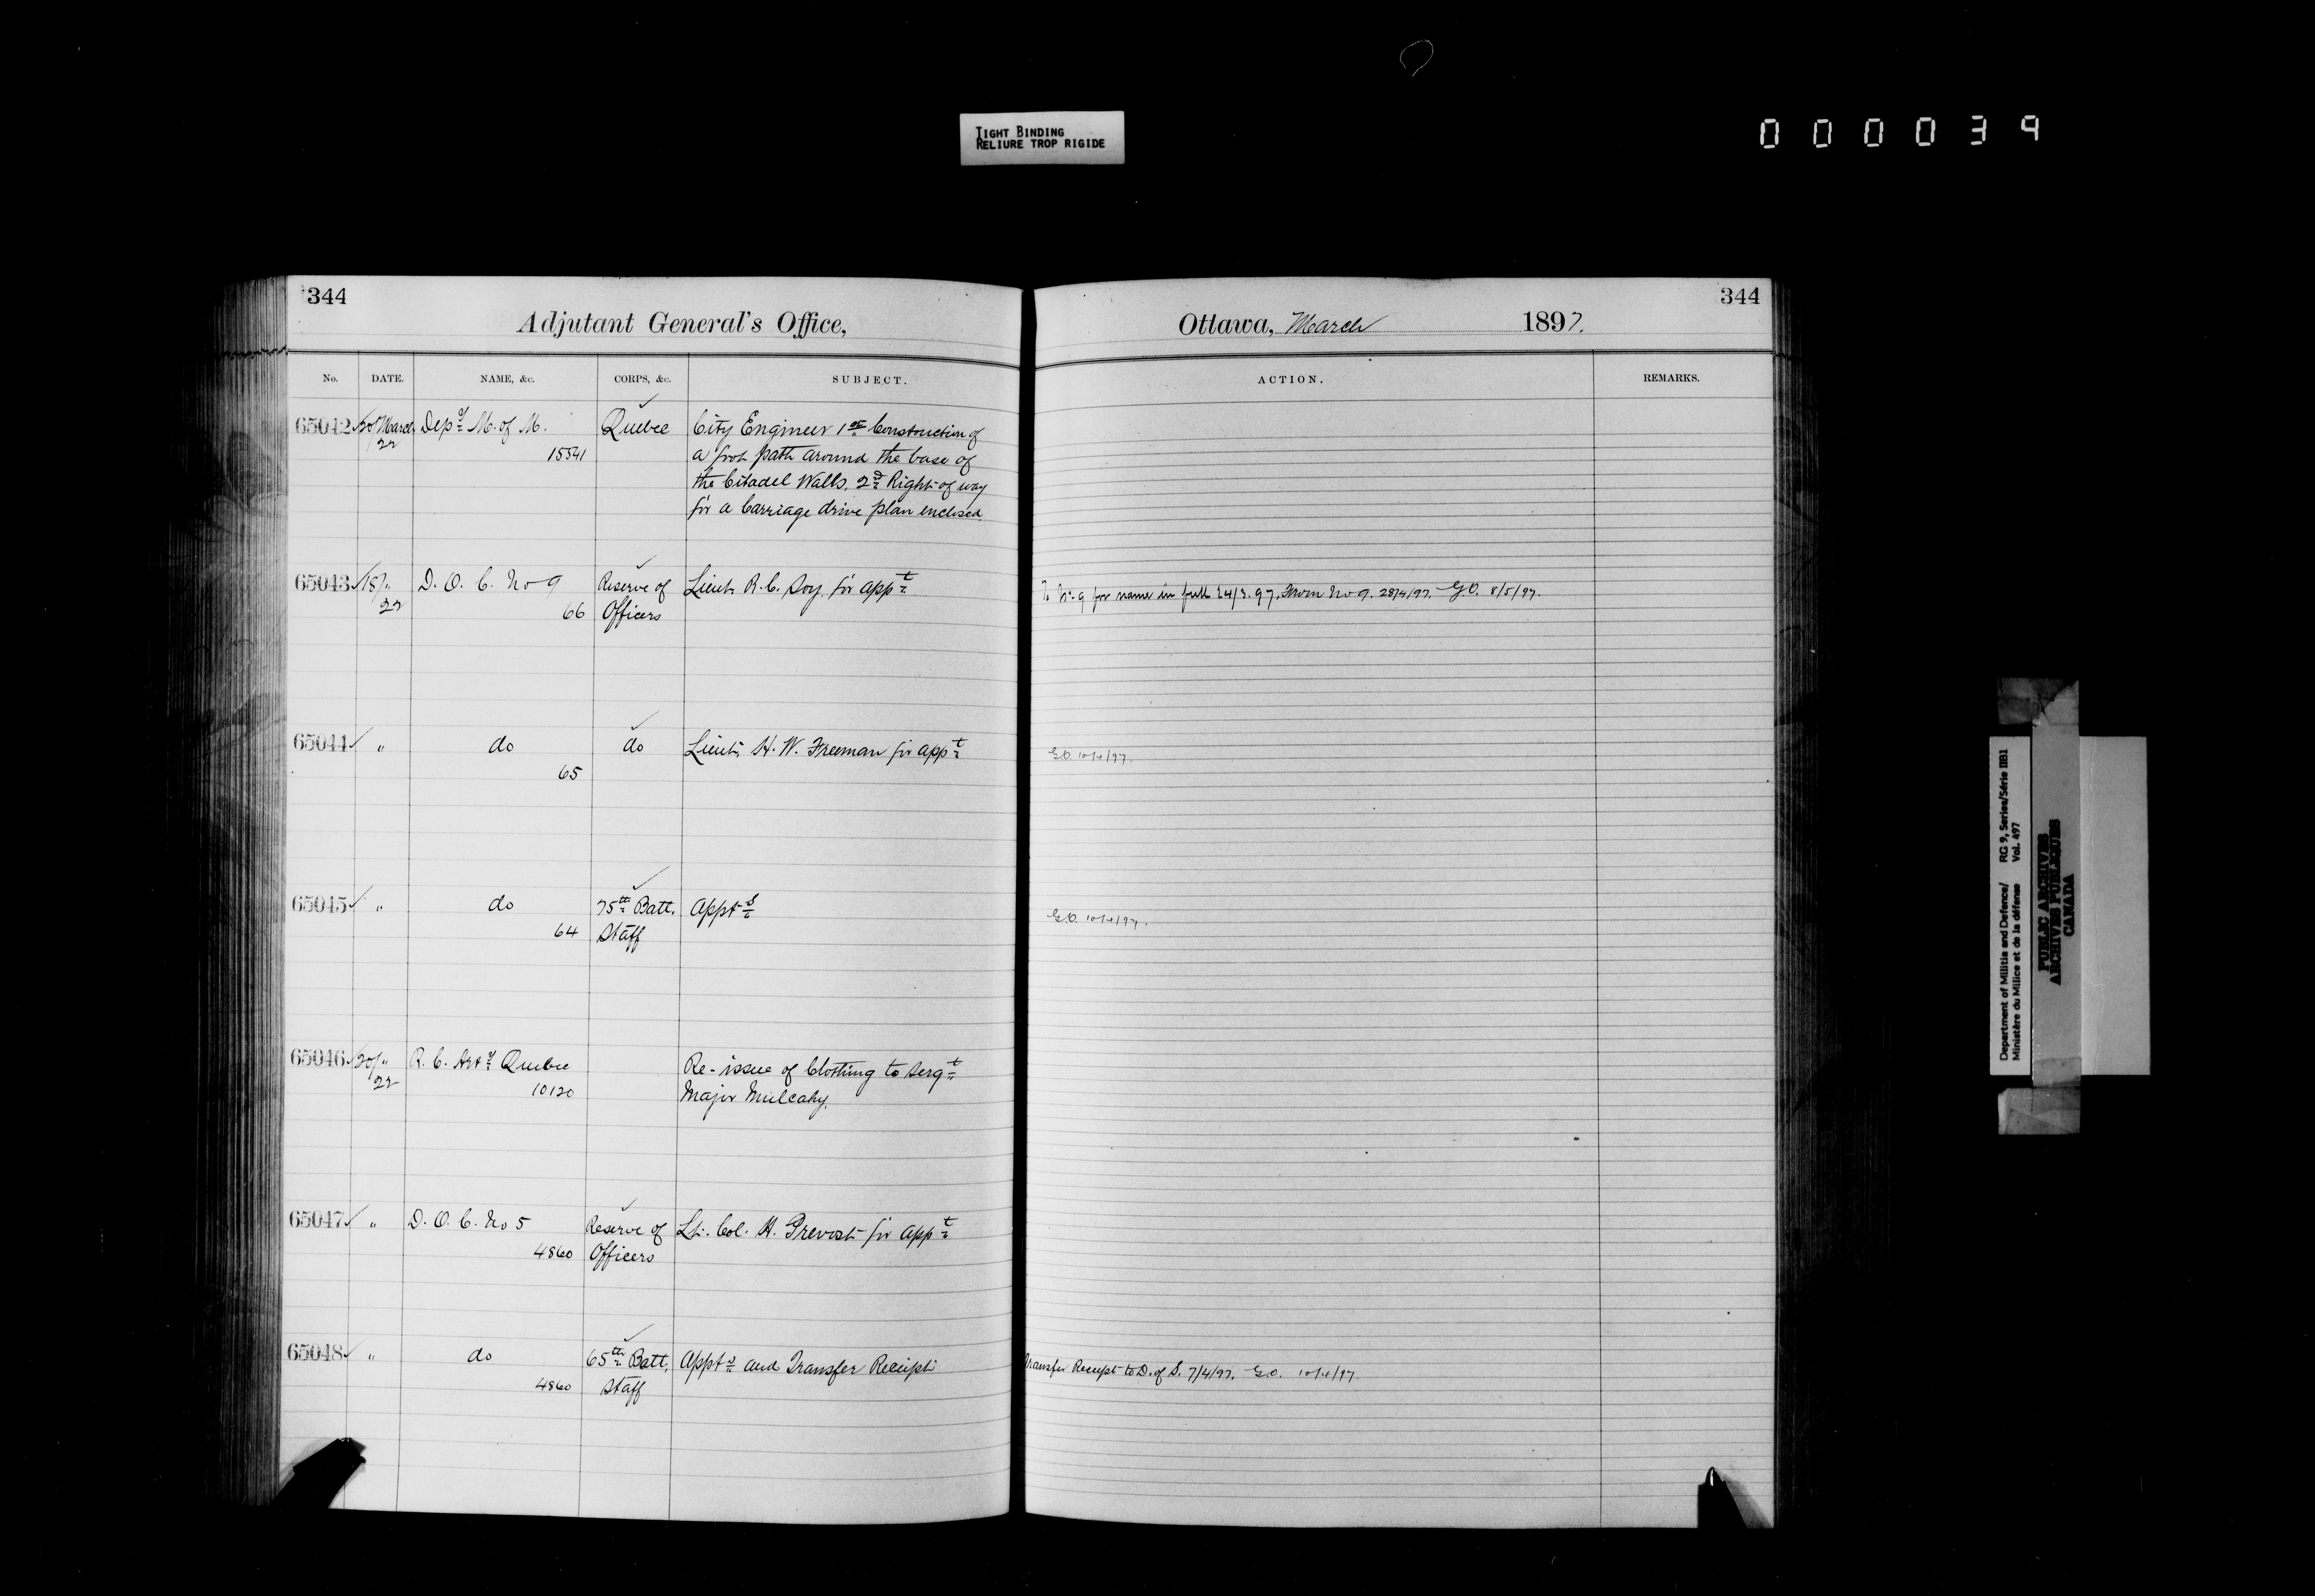 TIGHT BINDING
RELIURE TROP RIGIDE
000039
344
Adjutant General's Office,
No. DATE. NAME, &c. CORPS, &c. SUBJECT.
65042 20/March Depy M. of M. Quebec City Engineer 1st Construction of
22 15541 a foot path around the base of
the Citadel Walls. 2d Right of way
for a Carriage drive plan enclosed.
65043 18/" D. O. C. No 9 Reserve of Lieut. R. C. for appt
22 66 Officers
65044 " do do Lieut. H. W. Freeman for appt
65
65045 " do 75th Batt. Appts
64 Staff
65046 20/" R. C. Arty Quebec Re-issue of Clothing to Sergt
22 10120 Major Mulcahy.
65047 " D. O. C. No 5 Reserve of Lt. Col. H. Prevost for appt
4860 Officers
65048 " do 65th Batt. Appts and Transfer Receipt
4860 Staff
344
Ottawa, March 1897.
ACTION. REMARKS.
To No. 9 for name in full 24/3.97. From No 9. 28/4/97. G.O. 8/5/97.
G.O. 10/4/97.
G.O. 10/4/97.
Transfer Receipt to D. of S. 7/4/97. G.O. 10/4/97.
Department of Militia and Defence/ RG 9, Series/Série IIB1
Ministère du Milice et de la défense Vol. 497
PUBLIC ARCHIVES
ARCHIVES PUBLIQUES
CANADA